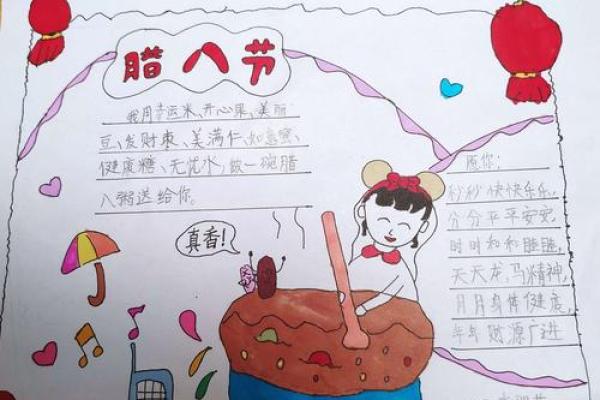 腊八节
我用幸运米、开心果、美丽
豆、发财枣、美满仁、如意蜜、
健康糖、无忧水,做一碗腊
八粥送给你。
真香!
愿你:
秒秒快快乐乐,
分分平平安安,
时时和和睦睦,
天天龙马精神,
月月身体健康,
年年财源广进